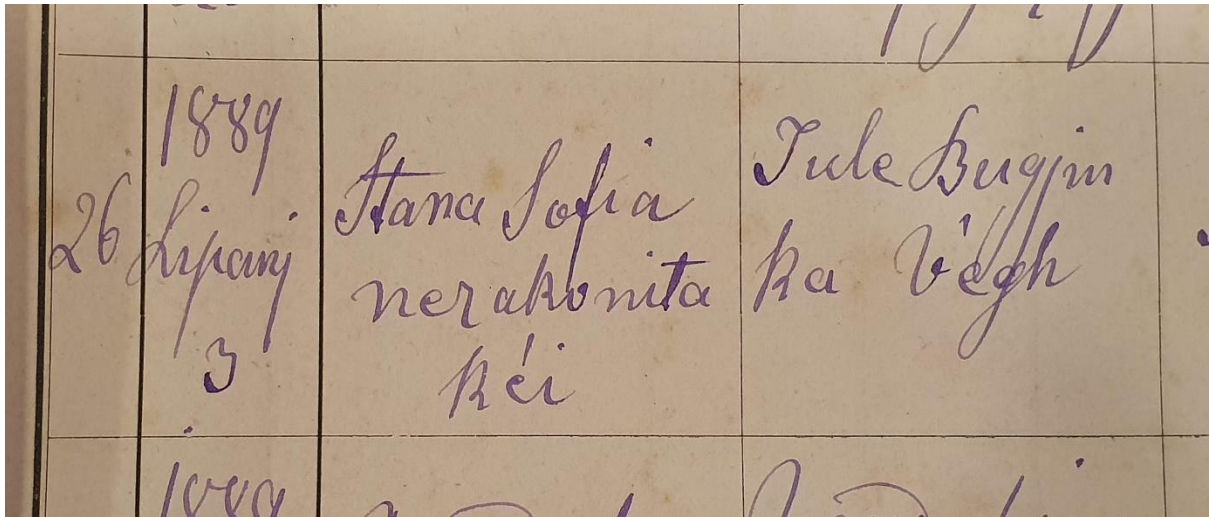 26
1889
Lipanj
3
Stana Sofia
nezakonita
kći
Jule Bugjin
ka Végh
1889